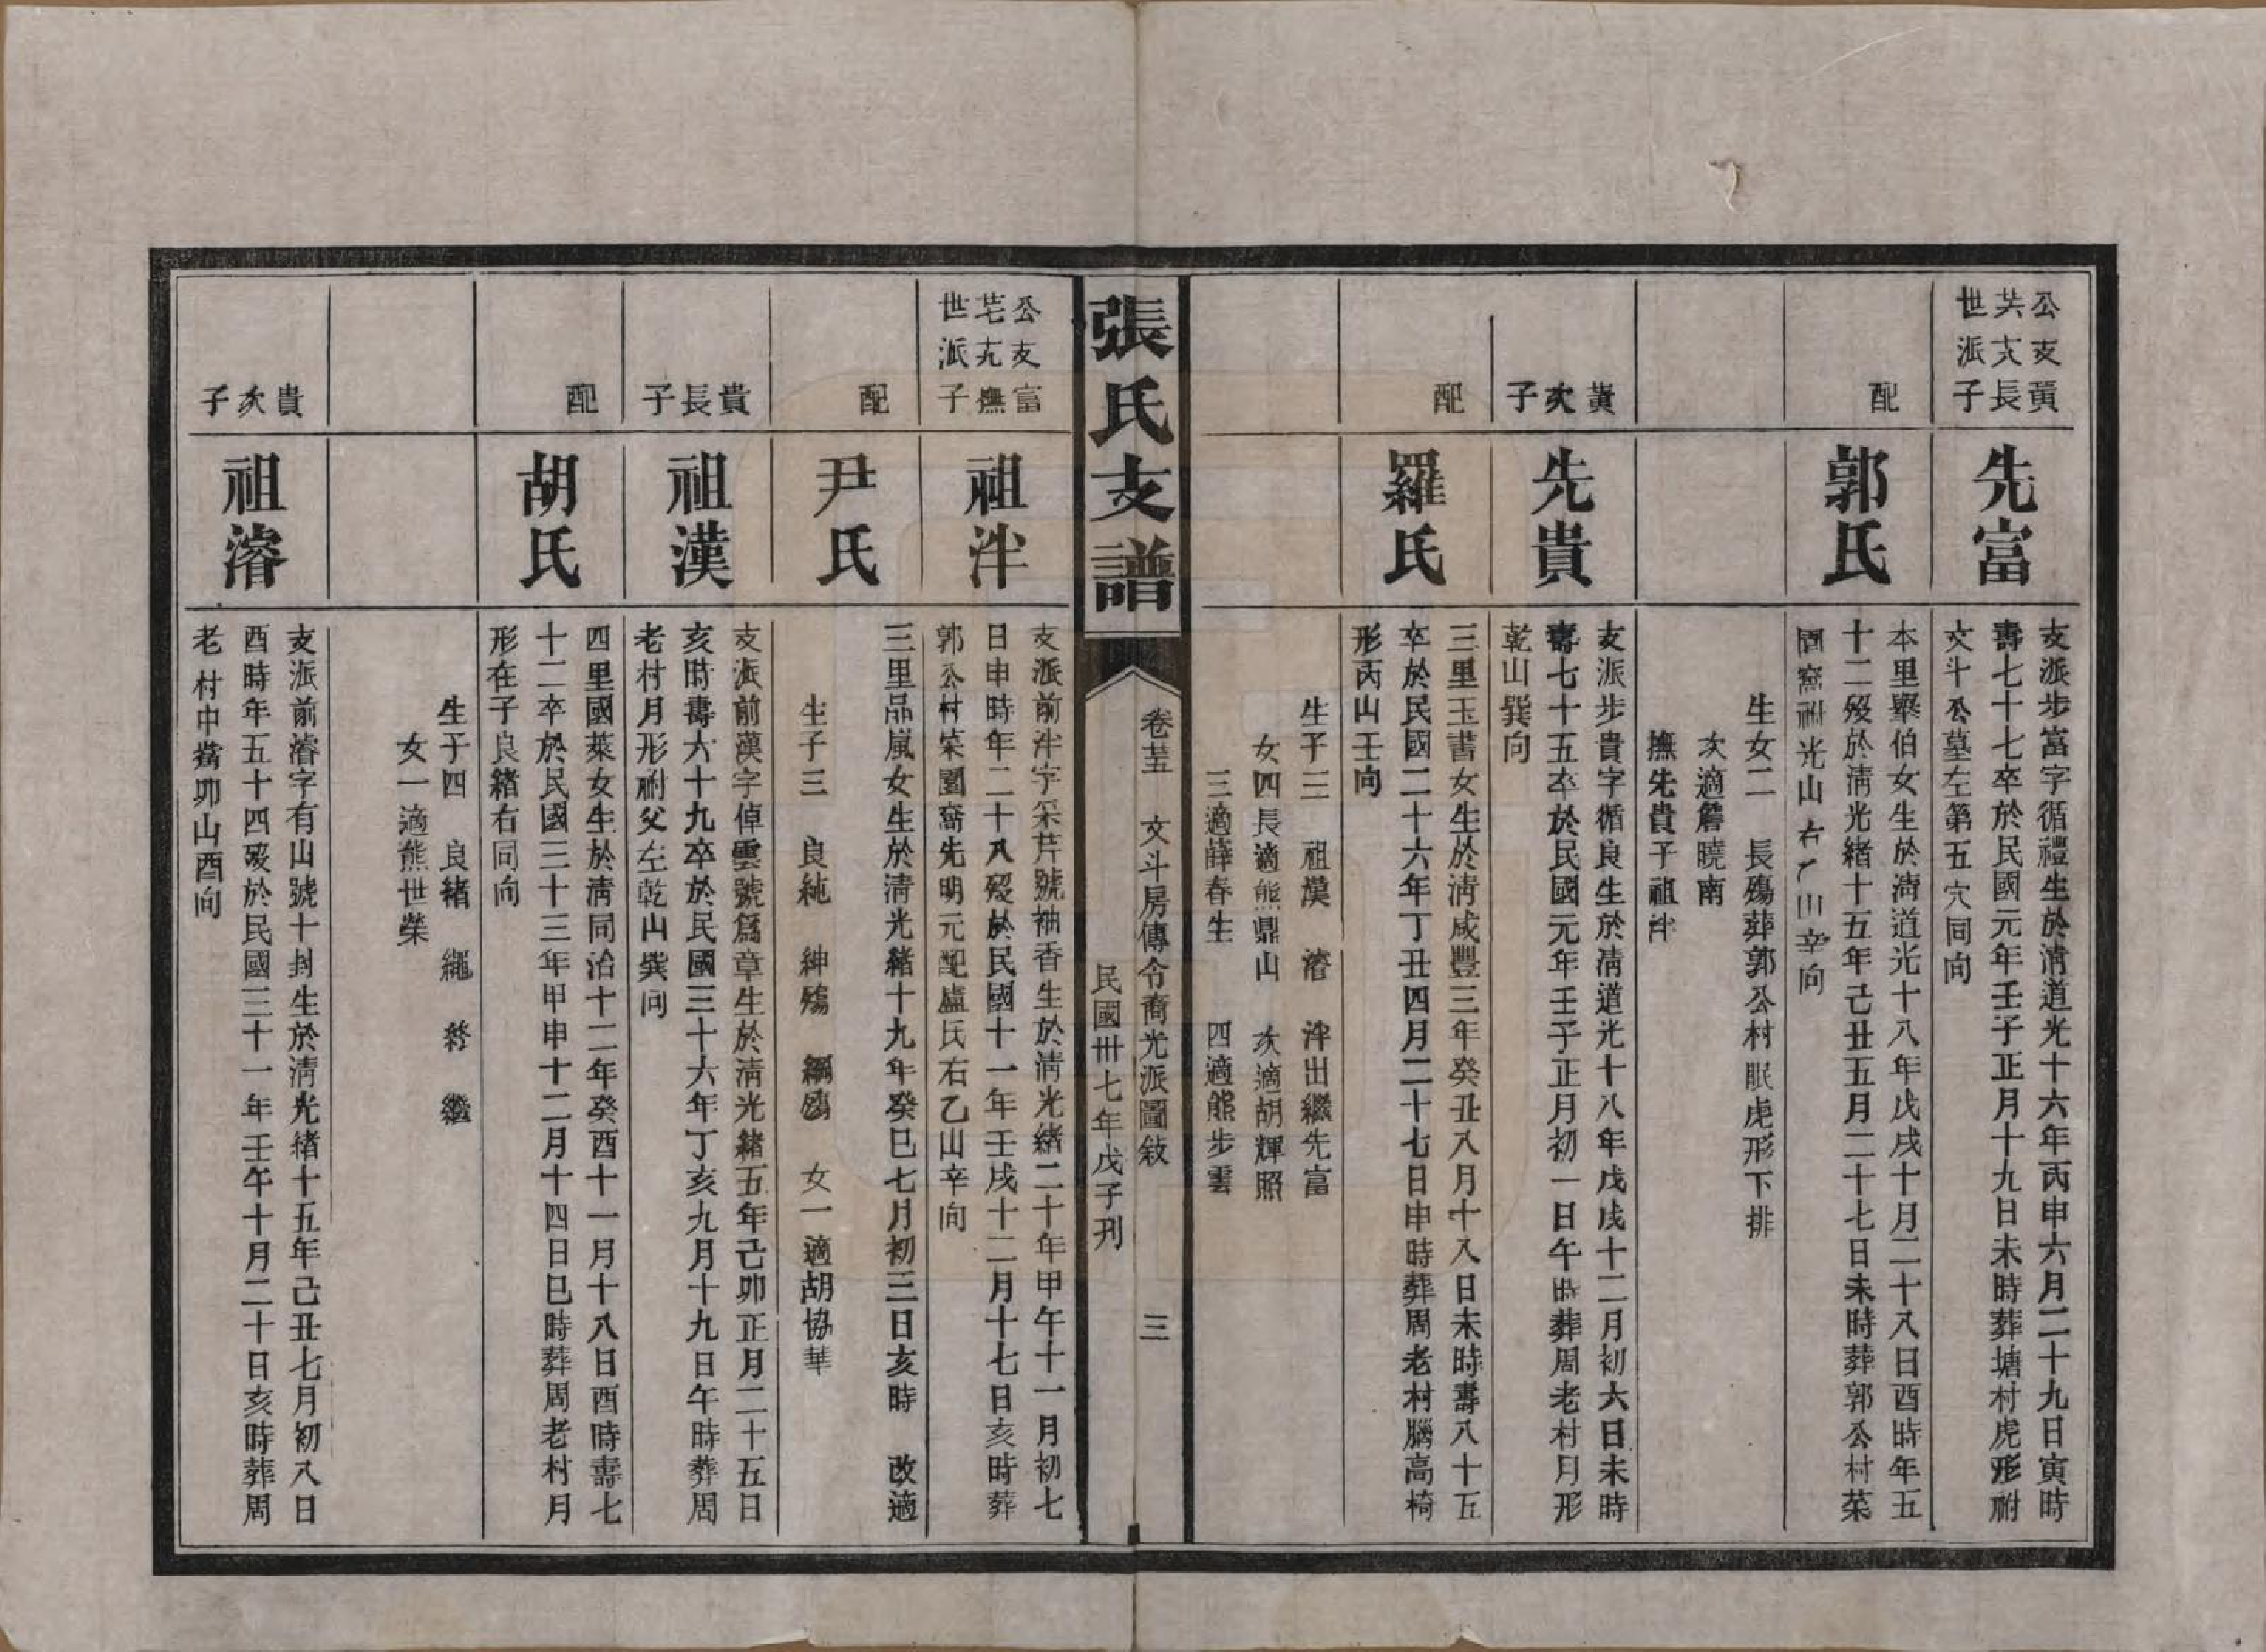 公支黃
共大長
世派子
先富
支派步富字循禮生於淸道光十六年丙申六月二十九日寅時
壽七十七卒於民國元年壬子正月十九日未時葬塘村虎形祔
文斗公墓左第五穴同向
配
郭氏
本里舉伯女生於淸道光十八年戊戌十月二十八日酉時年五
十二歿於淸光緒十五年己丑五月二十七日未時葬郭公村菜
園窩祔光山右乙山辛向
生女二 長殤葬郭公村眠虎形下排
次適詹曉南
撫先貴子祖泮
黃次子
先貴
支派步貴字循良生於淸道光十八年戊戌十二月初六日未時
壽七十五卒於民國元年壬子正月初一日午時葬周老村月形
乾山巽向
配
羅氏
三里玉書女生於淸咸豐三年癸丑八月十八日未時壽八十五
卒於民國二十六年丁丑四月二十七日申時葬周老村腦高椅
形丙山壬向
生子三 祖漢 濬 泮出繼先富
女四長適熊鼎山 次適胡輝照
三適薛春生 四適熊步雲
張氏支譜
卷五 文斗房傳令裔光派圖敍 三
民國卅七年戊子刊
公支富
宅尢撫
世派子
祖泮
支派前泮字采芹號袖香生於淸光緒二十年甲午十一月初七
日申時年二十八歿於民國十一年壬戌十二月十七日亥時葬
郭公村菜園窩先明元配盧氏右乙山辛向
配
尹氏
三里品嵐女生於淸光緒十九年癸巳七月初三日亥時 改適
生子三 良純 紳殤 綱殤 女一適胡協華
貴長子
祖漢
支派前漢字倬雲號爲章生於淸光緒五年己卯正月二十五日
亥時壽六十九卒於民國三十六年丁亥九月十九日午時葬周
老村月形祔父左乾山巽向
配
胡氏
四里國萊女生於淸同治十二年癸酉十一月十八日酉時壽七
十二卒於民國三十三年甲申十二月十四日巳時葬周老村月
形在子良緒右同向
生子四 良緒 繩 終 繼
女一適熊世榮
貴次子
祖濬
支派前濬字有山號十封生於淸光緒十五年己丑七月初八日
酉時年五十四歿於民國三十一年壬午十月二十日亥時葬周
老村中嘴卯山酉向